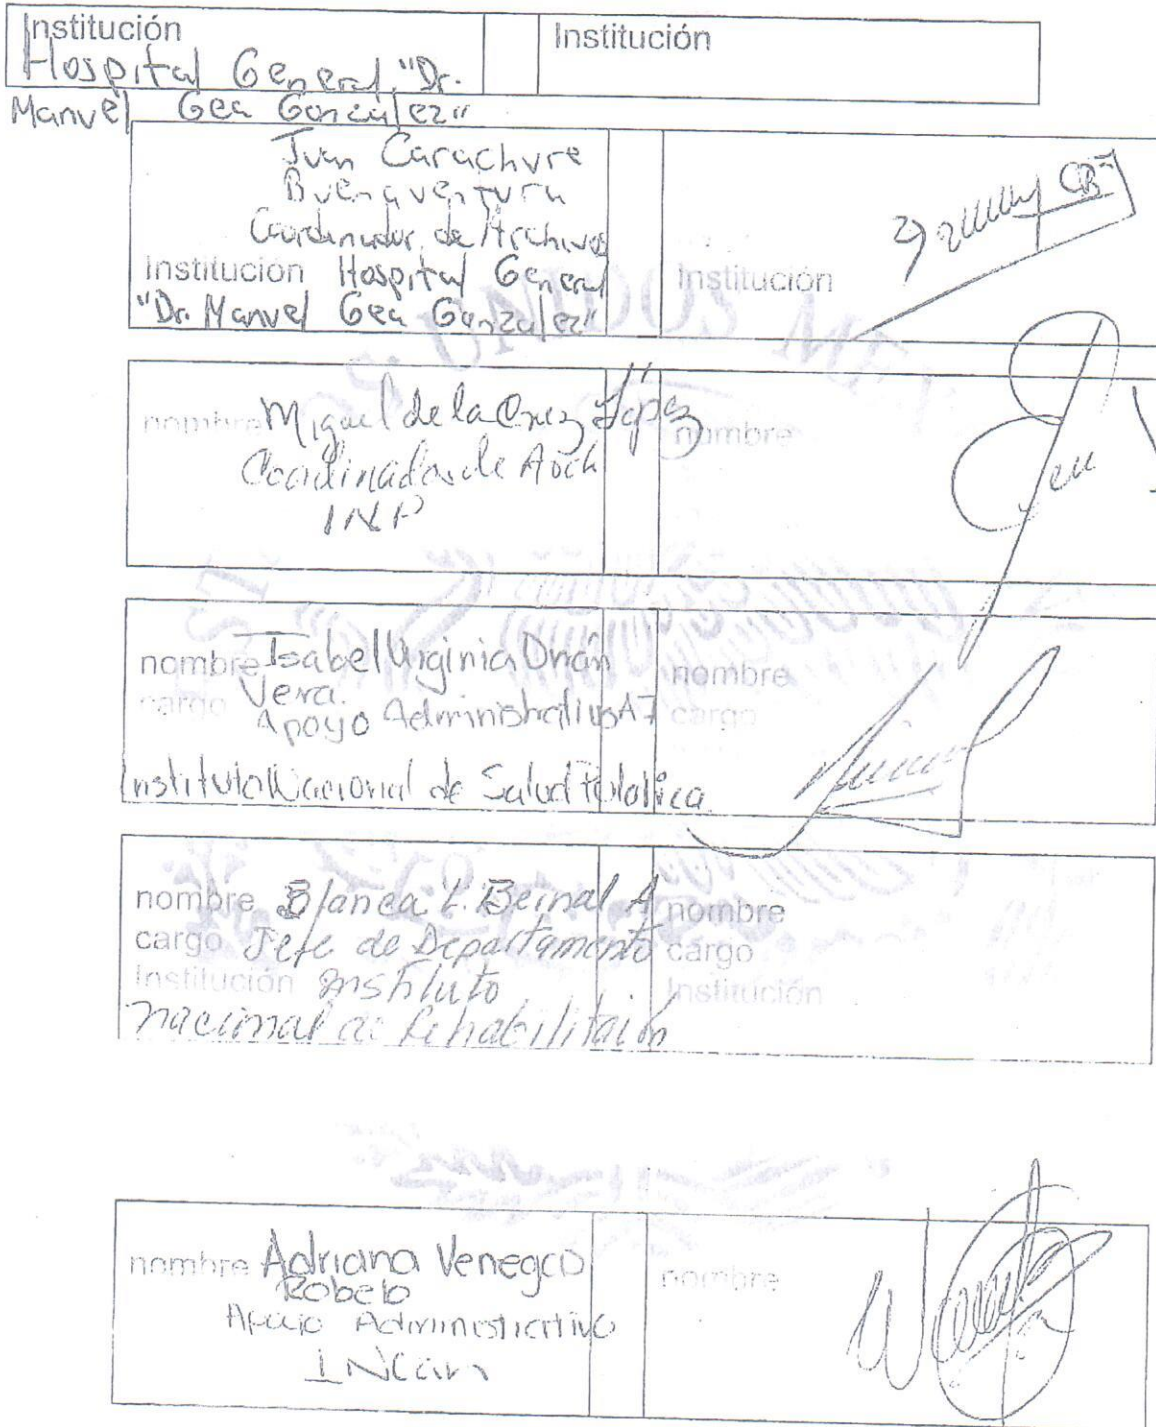 Institución
Institución
Hospital General "Dr.
Manuel Gea González"
Juan Carachure
Buenaventura
Coordinador de Archivos
Institución Hospital General
"Dr. Manuel Gea González"
Institución
nombre Miguel de la Cruz López
Coordinador de Arch
INP
nombre
nombre Isabel Virginia
Vera.
cargo Apoyo Administrativo
Instituto Nacional de Salud Pública
nombre
cargo
nombre Blanca L. Bernal A
cargo Jefe de Departamento
Institución Instituto
nacional de Rehabilitaión
nombre
cargo
Institución
nombre Adriana Venegas
Robelo
Apoyo Administrativo
INCan
nombre